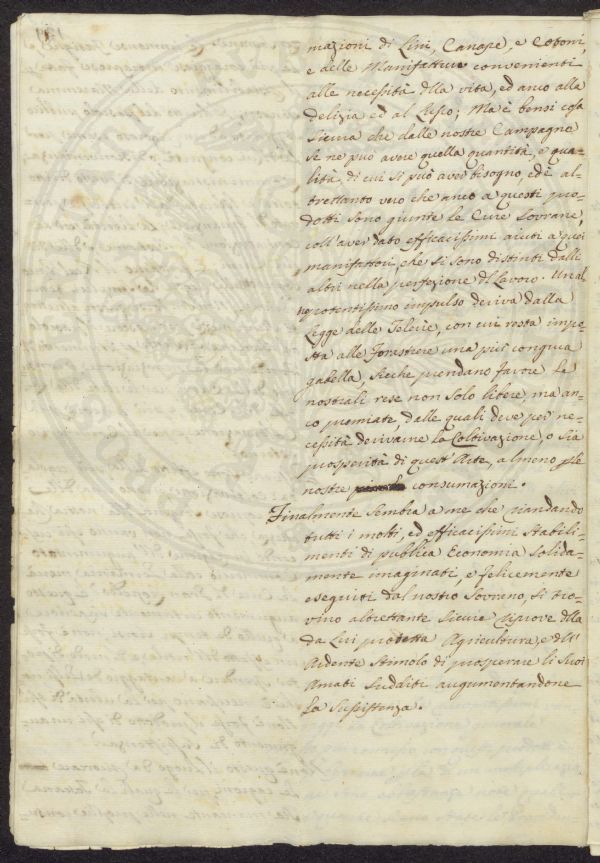 mazioni di Lini, Canape, e Cotoni,
e delle Manifatture convenienti
alle necessità dlla vita, ed anco alla
delizia ed al Lusso; Ma è bensi cosa
Sicura che dalle nostre Campagne
Se ne può avere quella quantità, e qua-
lità, di cui si può aver bisogno ed è al-
trettanto vero che anco a questi pro-
dotti sono giunte le Cure Sovrane,
coll'aver dato efficacissimi aiuti a quei
manifattori, che si sono distinti dalli
altri nella perfezione dl Lavoro. Un al
potentissimo impulso deriva dalla
Legge delle Telerie, con cui resta impo-
sta alle forastiere una più congrua
gabella, sicche prendano favore le
nostrali rese non solo libere, ma an-
co premiate, dalle quali deve per ne-
cessità derivarne la Coltivazione, o sia
prosperità di quest'Arte, almeno p le
nostre consumazioni.
Finalmente Sembra a me che riandando
tutti i molti, ed efficacissimi Stabili-
menti di publica Economia solida-
mente imaginati, e felicemente
eseguiti dal nostro Sovrano, si tro-
vino altrettante Sicure riprove dlla
da Lui protetta Agricultura, e dll'
Ardente Stimolo di prosperare li Suoi
Amati Sudditi augumentandone
la Sussistenza.